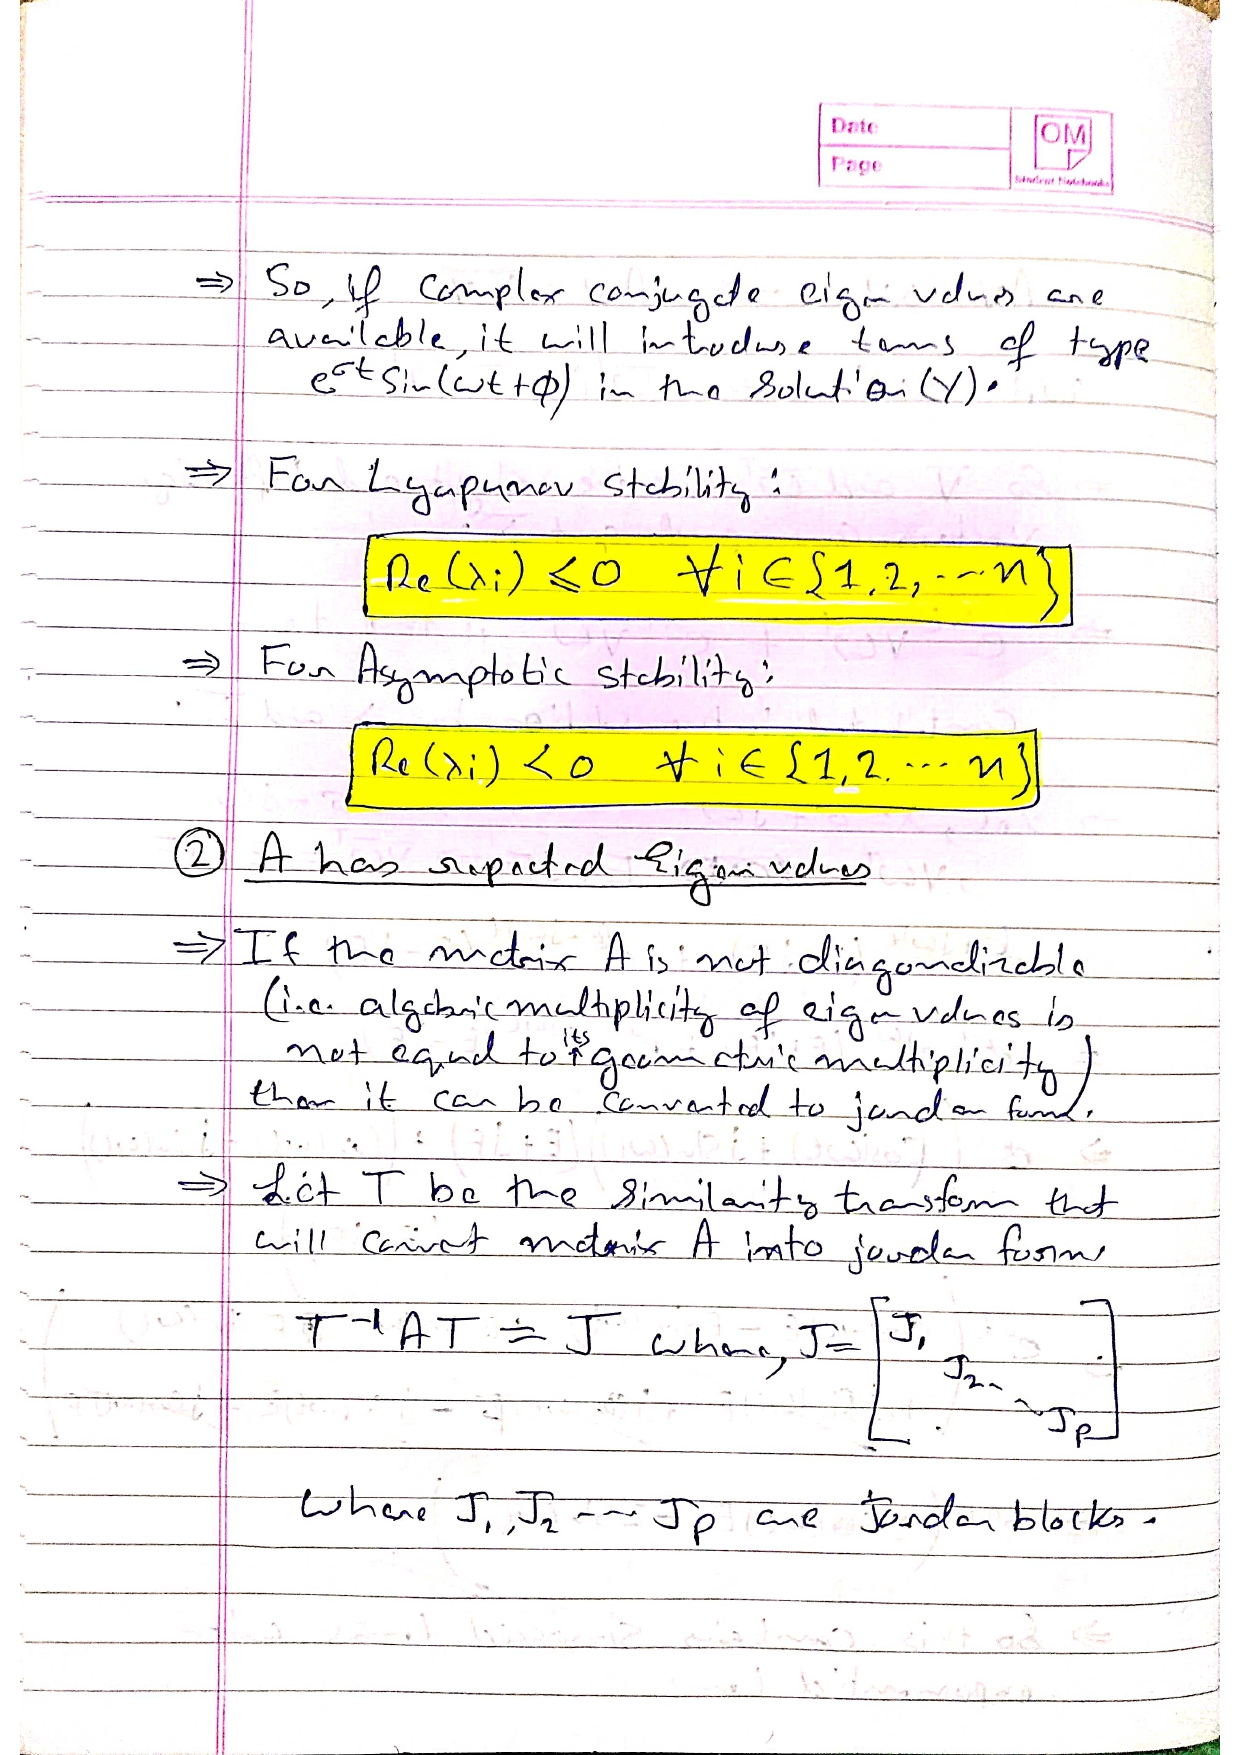 Date
Page
OM
Student Notebooks
⇒ So, if complex conjugate eigen values are
available, it will introduce terms of type
e^σt Sin(ωt+φ) in the solution (Y).
⇒ For Lyapunov stability:
Re(λi) ≤ 0 ∀ i ∈ {1,2, --- n}
⇒ For Asymptotic stability:
Re(λi) < 0 ∀ i ∈ {1,2. --- n}
② A has repeated Eigen values
⇒ If the matrix A is not diagonalizable
(i.e. algebric multiplicity of eigen values is
not equal to its geometric multiplicity)
then it can be converted to jordan form.
⇒ Let T be the similarity transform that
will convert matrix A into jordan form
T⁻¹AT = J where, J = [J₁ J₂ Jp]
where J₁, J₂ --- Jp are Jordan blocks.